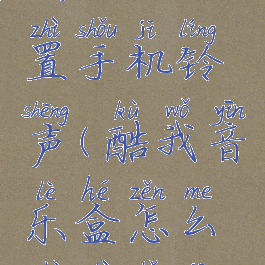 zhì shǒu jī líng
置手机铃
shēng kù wǒ yīn
声(酷我音
lè hé zěn me
乐盒怎么